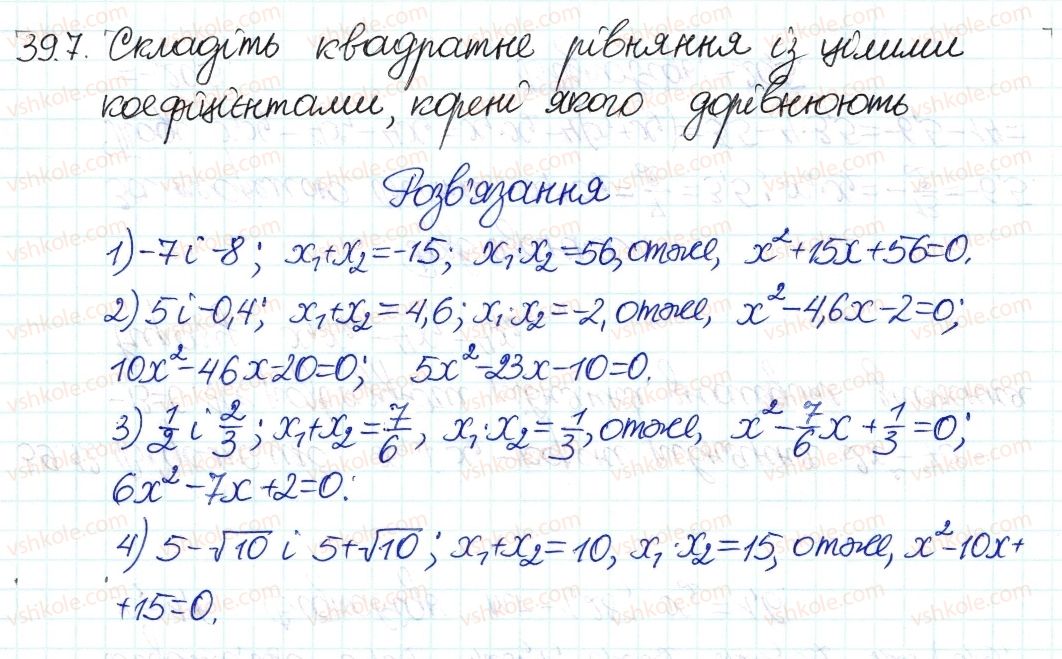 39.7. Складіть квадратне рівняння із цілими
коефіцієнтами, корені якого дорівнюють
Розв'язання
1) -7 і -8; x₁+x₂=-15; x₁·x₂=56, отже, x²+15x+56=0.
2) 5 і -0,4; x₁+x₂=4,6; x₁·x₂=-2, отже, x²-4,6x-2=0;
10x²-46x-20=0; 5x²-23x-10=0.
3) 1/2 і 2/3; x₁+x₂=7/6, x₁·x₂=1/3, отже, x²-7/6x+1/3=0;
6x²-7x+2=0.
4) 5-√10 і 5+√10; x₁+x₂=10, x₁·x₂=15, отже, x²-10x+
+15=0.